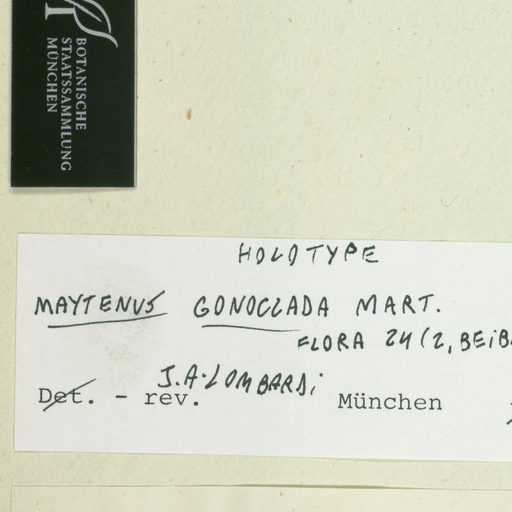 BOTANISCHE
STAATSSAMMLUNG
MÜNCHEN
HOLOTYPE
MAYTENUS GONOCLADA MART.
FLORA 24(2, BEIB
J.A. LOMBARDI
Det. - rev. München